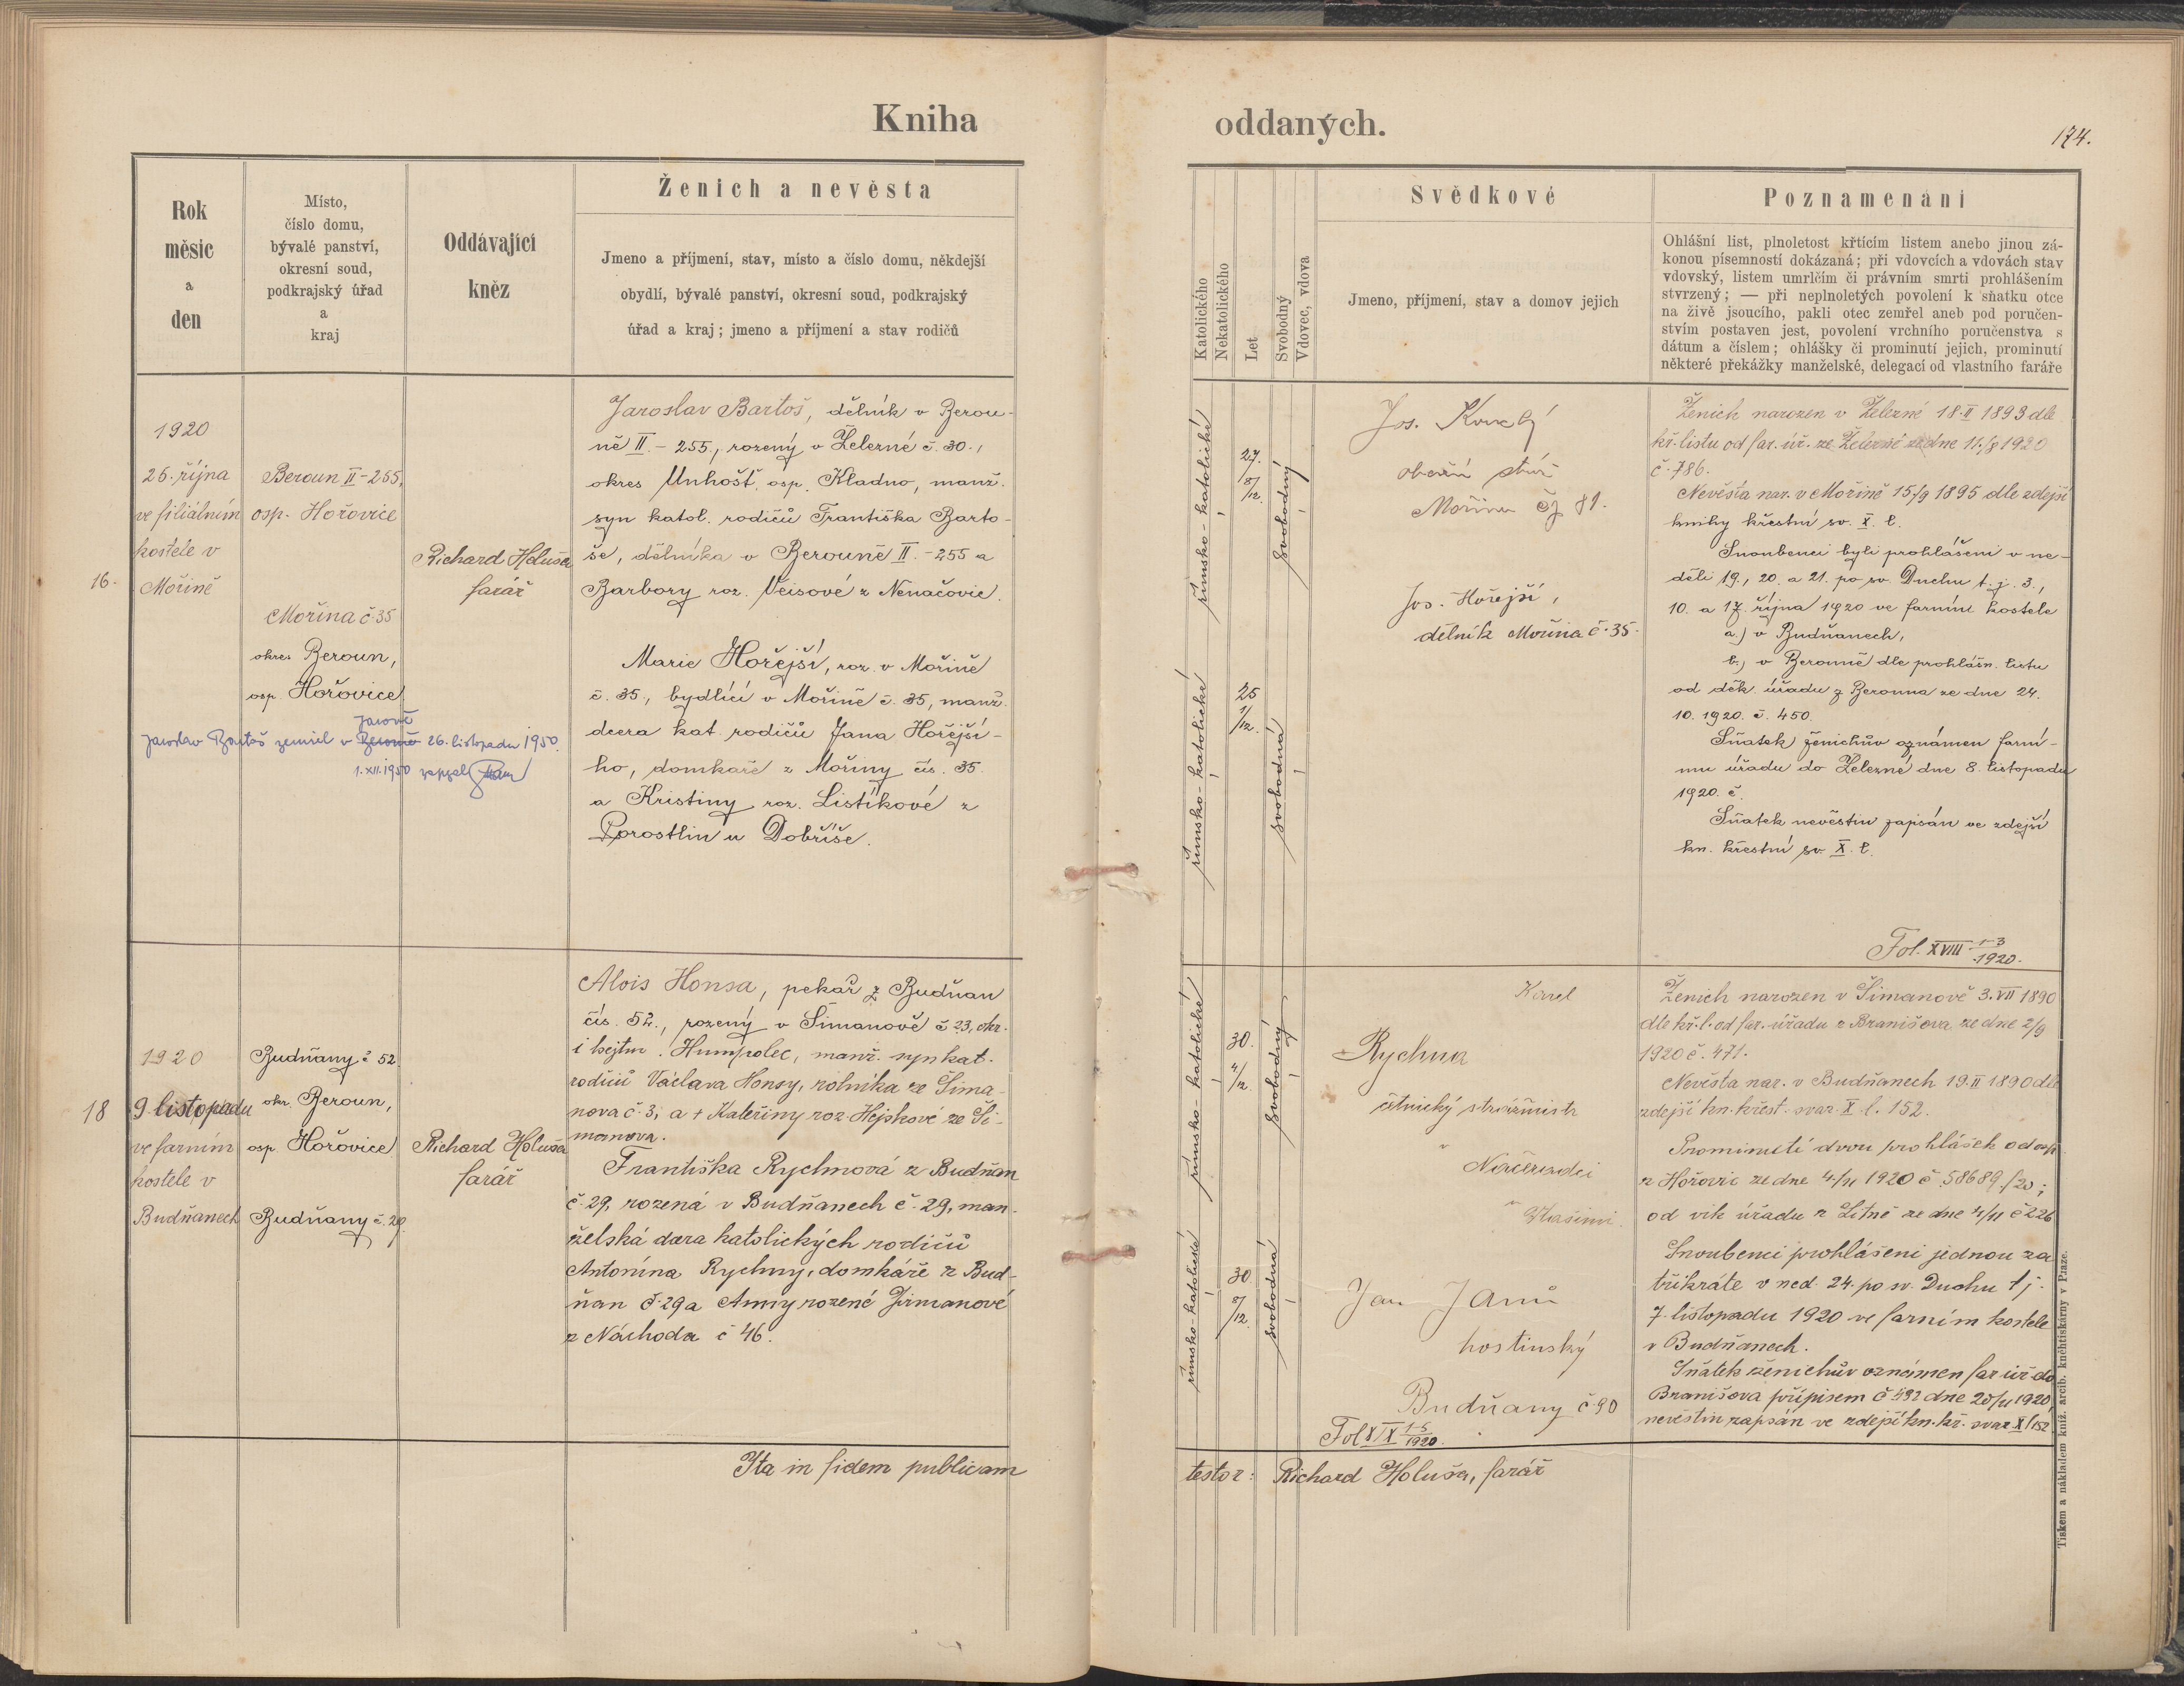 Kniha
oddaných.
174.
Rok
měsíc
a
den
Místo,
číslo domu,
bývalé panství,
okresní soud,
podkrajský úřad
a
kraj
Oddávající
kněz
Ženich a nevěsta
Jmeno a příjmení, stav, místo a číslo domu, někdejší
obydlí, bývalé panství, okresní soud, podkrajský
úřad a kraj; jmeno a příjmení a stav rodičů
Katolického
Nekatolického
Let
Svobodný
Vdovec, vdova
Svědkové
Jmeno, příjmení, stav a domov jejich
Poznamenání
Ohlášní list, plnoletost křtícím listem anebo jinou zá-
konou písemností dokázaná; při vdovcích a vdovách stav
vdovský, listem umrlčím či právním smrti prohlášením
stvrzený; — při neplnoletých povolení k sňatku otce
na živě jsoucího, pakli otec zemřel aneb pod poručen-
stvím postaven jest, povolení vrchního poručenstva s
dátum a číslem; ohlášky či prominutí jejich, prominutí
některé překážky manželské, delegací od vlastního faráře
16.
1920
26. října
ve filiálním
kostele v
Mořině
Beroun II-255,
osp. Hořovice
Mořina č 35
okres Beroun,
osp. Hořovice
Richard Holuša
farář
Jaroslav Bartoš, dělník v Berou-
ně II. - 255., rozený v Železné č. 30.,
okres Unhošť, osp. Kladno, manž.
syn katol. rodičů Františka Barto-
še, dělníka v Berouně II. - 255 a
Barbory roz. Veisové z Nenačovic.
Marie Hořejší, roz. v Mořině
č. 35., bydlící v Mořině č. 35, manž.
dcera kat. rodičů Jana Hořejší-
ho, domkaře z Mořiny čís. 35.
a Kristiny roz. Listíkové z
Porostlin u Dobříše.
Jaroslav Bartoš zemřel v Berouně 26. listopadu 1950.
1. XII. 1950 zapsal
římsko-katolické
27.
8/12.
svobodný
římsko-katolické
25
1/12.
svobodná
Jos.
Mořina čp 81.
Jos. Hořejší,
dělník Mořina č. 35.
Ženich narozen v Železné 18. II 1893 dle
kř. listu od far. úř. ze Železné ze dne 11./8 1920
č. 786.
Nevěsta nar. v Mořině 15./9 1895 dle zdejší
knihy křestní sv. X. l.
Snoubenci byli prohlášeni v ne-
děli 19., 20. a 21. po sv. Duchu t. j. 3.,
10. a 17. října 1920 ve farním kostele
a.) v Budňanech,
b.) v Berouně dle prohlášn. listu
od děk. úřadu z Berouna ze dne 24.
10. 1920. č. 450.
Sňatek ženichův oznámen farní-
mu úřadu do Železné dne 8. listopadu
1920. č.
Sňatek nevěstin zapsán ve zdejší
kn. křestní sv. X. l.
Fol. XVIII 1-3/1920.
18
1920
9 listopadu
ve farním
kostele v
Budňanech
Budňany č 52.
okr. Beroun,
osp. Hořovice
Budňany č. 29.
Richard Holuša
farář
Alois Honsa, pekař z Budňan
čís. 52., rozený v Šimanově č 23, okr.
i hejtm. Humpolec, manž. syn kat.
rodičů Václava Honsy, rolníka ze Šima-
nova č. 3; a + Kateřiny roz. Hejskové ze Ši-
manova.
Františka Rychnová z Budňan
č. 29, rozená v Budňanech č. 29, man-
želská dcera katolických rodičů
Antonína Rychny, domkáře z Bud-
ňan č. 29 a Anny rozené Jirmanové
z Náchoda č 46.
římsko-katolické
30.
4/12.
svobodný
římsko-katolické
30
8/12.
svobodná
Karel
Rychna
četnický strážmistr
v
Načeradci
Vlašimi.
Jan Janů
hostinský
Budňany č. 90
Fol XIX 1-5/1920.
Ženich narozen v Šimanově 3. VII 1890
dle kř. l. od far. úřadu z Branišova ze dne 2/9
1920 č. 471.
Nevěsta nar. v Budňanech 19. II 1890 dle
zdejší kn. křest. svaz. X. l. 152.
Prominutí dvou prohlášek od osp.
z Hořovic ze dne 4/11 1920 č. 58689/20;
od vik úřadu z Litně ze dne 4/11 č 226
Snoubenci prohlášeni jednou za
třikráte v ned. 24. po sv. Duchu t. j.
7. listopadu 1920 ve farním kostele
v Budňanech.
Sňatek ženichův oznámen far úř. do
Branišova přípisem č 492 dne 20/11 1920,
nevěstin zapsán ve zdejší kn. kř. svaz X l 152
Ita in fidem publicam
testor: Richard Holuša, farář
Tiskem a nákladem kníž. arcib. knihtiskárny v Praze.